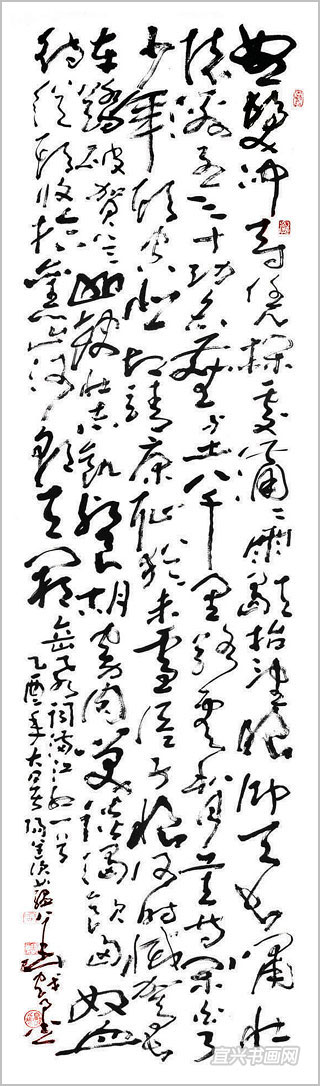 怒髮冲冠凭栏处潇潇雨歇抬望眼仰天长啸壮
怀激烈三十功名尘与土八千里路云和月莫等闲白了
少年头空悲切靖康耻犹未雪臣子恨何时灭驾长
车踏破贺兰山缺壮志饥餐胡虏肉笑谈渴饮匈奴血
待从头收拾旧山河朝天阙
岳飞词满江红一首
乙酉年大暑
宜兴书画网